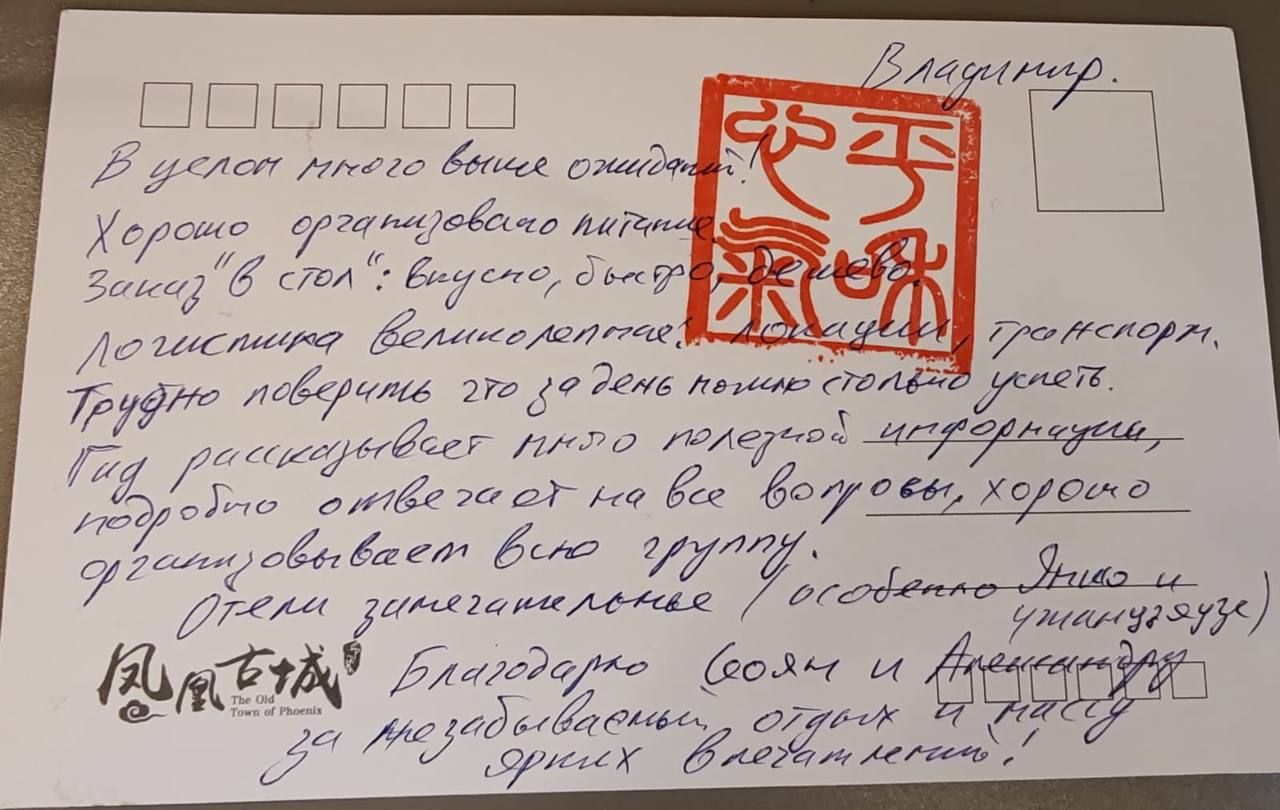 Владимир.
В целом много выше ожиданий!
Хорошо организовано питание.
Заказ "в стол": вкусно, быстро, дешево.
Логистика великолепная: локации, транспорт.
Трудно поверить что за день можно столько успеть.
Гид рассказывает много полезной информации,
подробно отвечает на все вопросы, хорошо
организовывает всю группу.
Отели замечательные (особенно Яншо и
Чжанцзяцзе)
Благодарю Сюян и Александру
за незабываемый отдых и массу
ярких впечатлений!
心平
氣和
凤凰古城
The Old
Town of Phoenix